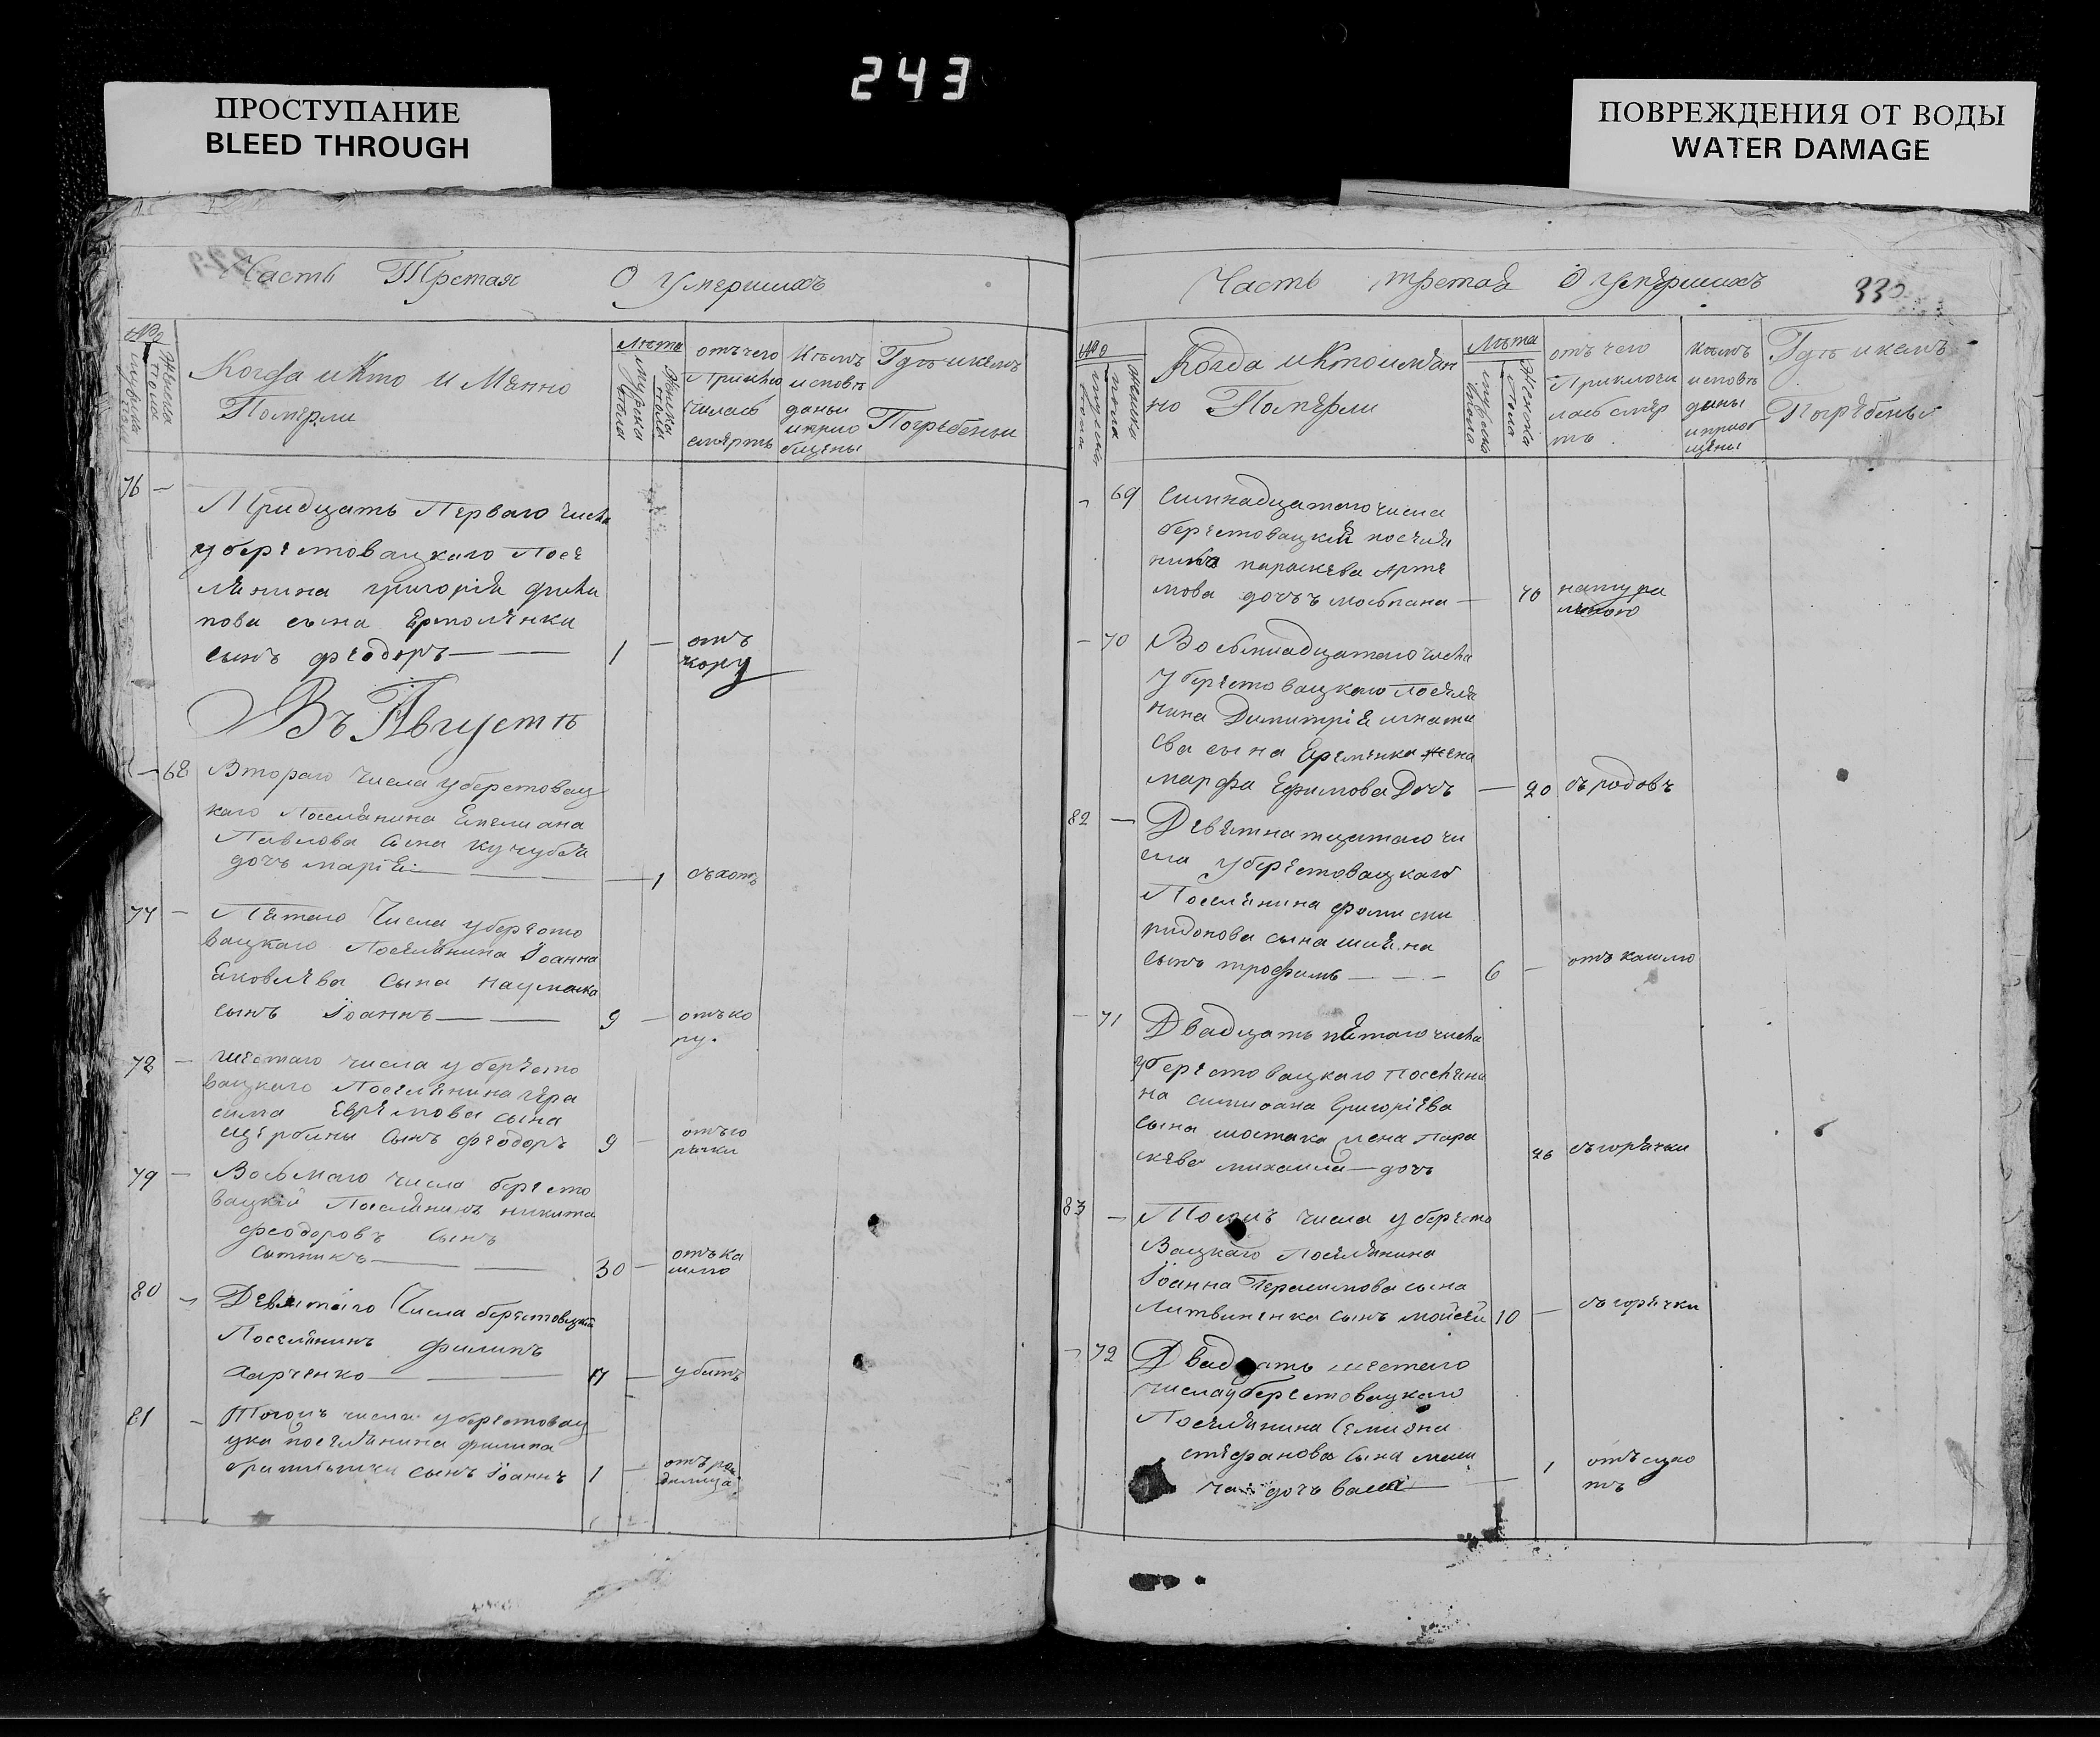 243
ПРОСТУПАНИЕ
BLEED THROUGH
ПОВРЕЖДЕНИЯ ОТ ВОДЫ
WATER DAMAGE
Часть Третая О Умершихъ
№
Женска пола
Когда и Кто И Мянно
Померли
Лѣта
Мужска пола
Женска пола
отъ чего
Приклю
чилась
смерть
Кѣмъ
исповѣ
даны
и прио
бщены
Гдѣ и кемъ
Погребены
76 —
Тридцать Перваго числа
у берестовацкаго Посе
лянина григорія фили
пова сына Ермоленки
сынъ феодоръ — — 1 — отъ
кору
Въ Августѣ
— 68 Втораго числа у берестовац
каго Поселянина Емелиана
Павлова сына кучубея
дочь марія — — 1 съ
77 — Пятаго Числа у бересто
вацкаго Поселянина Іоанна
Яковлева сына наумейка
сынъ Іоаннъ — — 9 — отъ ко
ру.
78 — шестаго числа у бересто
вацкаго Поселянина гера
сима Евремова сына
щербины сынъ феодоръ 9 — отъ го
рячки
79 — Восьмаго числа бересто
вацкій Поселянинъ никита
феодоровъ сынъ
сотникъ — — 30 — отъ ка
шлю
80 — Девятаго Числа берестовацкій
Поселянинъ филипъ
харченко — — — убитъ
81 — Тогожъ числа у берестовац
ка поселянина филипа
сынъ Іоаннъ 1 — отъ
Часть третая О умершихъ 330
№
Женска пола
Когда и Кто имян
но Померли
Лѣта
Мужска пола
Женска пола
отъ чего
Приключи
лась смер
ть
Кѣмъ
исповѣ
даны
и приоб
щены
Гдѣ и кемъ
Погребены
— 69 Симнадцатаго числа
берестовацкая поселя
нинка параскева Арте
мова дочь — 70 натура
льною
— 70 Восемнадцатаго числа
У берестовацкаго Поселя
нина Димитрія игнати
ева сына Еременка жена
марфа Ефимова Дочь — 20 съ родовъ
82 — Девятнатцатаго чи
сла у берестовацкаго
Поселянина фоми спи
ридонова сына
сынъ трофимъ — — 6 — отъ кашлю
— 71 Двадцать пятаго числа
у берестовацкаго Поселяни
на симиона Григоріева
сына шостака жена Пара
скева михаила — дочь 26 съ горячки
83 — Тогожъ числа у бересто
Вацкаго Поселянина
Іоанна Герасимова сына
Литвиненка сынъ мойсей 10 — съ горячки
— 72 Двадцать шестаго
числа у берестовацкаго
Поселянина Семиона
стефанова сына
дочь — 1